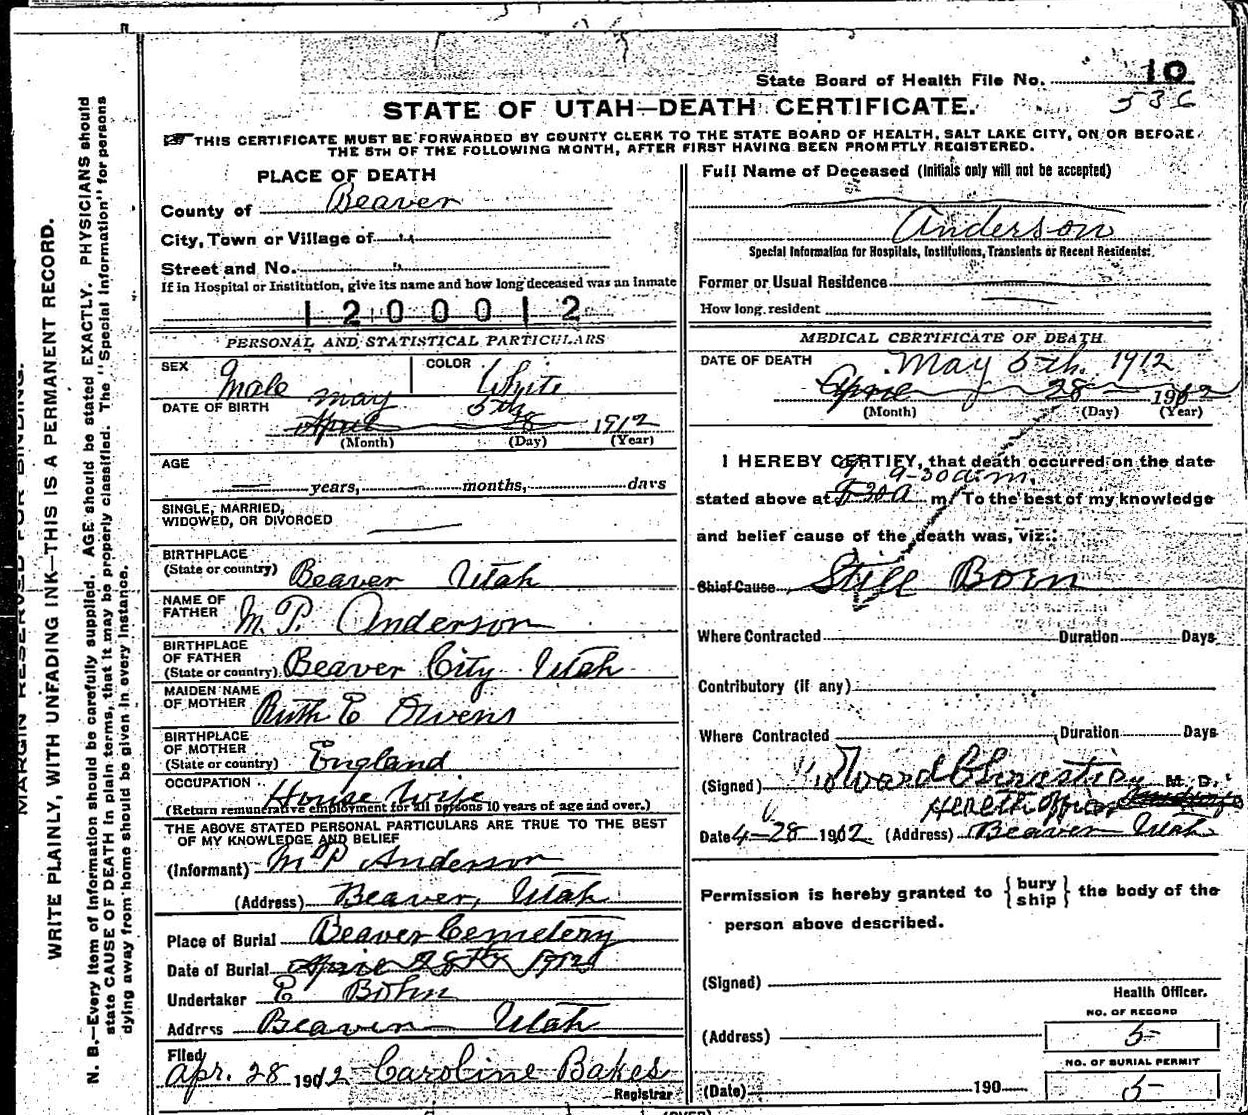 State Board of Health File No. 10
536
STATE OF UTAH—DEATH CERTIFICATE.
THIS CERTIFICATE MUST BE FORWARDED BY COUNTY CLERK TO THE STATE BOARD OF HEALTH, SALT LAKE CITY, ON OR BEFORE
THE 5TH OF THE FOLLOWING MONTH, AFTER FIRST HAVING BEEN PROMPTLY REGISTERED.
MARGIN RESERVED FOR BINDING.
WRITE PLAINLY, WITH UNFADING INK—THIS IS A PERMANENT RECORD.
N. B.—Every item of information should be carefully supplied. AGE should be stated EXACTLY. PHYSICIANS should
state CAUSE OF DEATH in plain terms, that it may be properly classified. The "Special Information" for persons
dying away from home should be given in every instance.
PLACE OF DEATH
County of Beaver
City, Town or Village of "
Street and No. "
If in Hospital or Institution, give its name and how long deceased was an inmate
1200012
PERSONAL AND STATISTICAL PARTICULARS
SEX Male COLOR White
DATE OF BIRTH May 5th
April 28 1912
(Month) (Day) (Year)
AGE
years, months, days
SINGLE, MARRIED,
WIDOWED, OR DIVORCED
BIRTHPLACE
(State or country) Beaver Utah
NAME OF
FATHER M. P. Anderson
BIRTHPLACE
OF FATHER
(State or country) Beaver City Utah
MAIDEN NAME
OF MOTHER Ruth E Owens
BIRTHPLACE
OF MOTHER
(State or country) England
OCCUPATION House Wife
(Return remunerative employment for all persons 10 years of age and over.)
THE ABOVE STATED PERSONAL PARTICULARS ARE TRUE TO THE BEST
OF MY KNOWLEDGE AND BELIEF
(Informant) M P Anderson
(Address) Beaver, Utah
Place of Burial Beaver Cemetery
Date of Burial April 28th 1912
Undertaker E Bohn
Address Beaver Utah
Filed
Apr. 28 1902 Caroline Bakes
Registrar
Full Name of Deceased (Initials only will not be accepted)
Anderson
Special Information for Hospitals, Institutions, Transients or Recent Residents.
Former or Usual Residence
How long resident
MEDICAL CERTIFICATE OF DEATH
DATE OF DEATH May 5th. 1912
April 28 1912
(Month) (Day) (Year)
I HEREBY CERTIFY, that death occurred on the date
9-30 a.m.
stated above at 8-30 a m. To the best of my knowledge
and belief cause of the death was, viz.:
Chief Cause Still Born
Where Contracted Duration Days
Contributory (if any)
Where Contracted Duration Days
(Signed) Edward Christian M. D.
Health Officer
Date 4-28 1912 (Address) Beaver Utah
Permission is hereby granted to { bury ship } the body of the
person above described.
(Signed)
Health Officer.
NO. OF RECORD
(Address) 5
NO. OF BURIAL PERMIT
(Date) 190 5
(OVER)